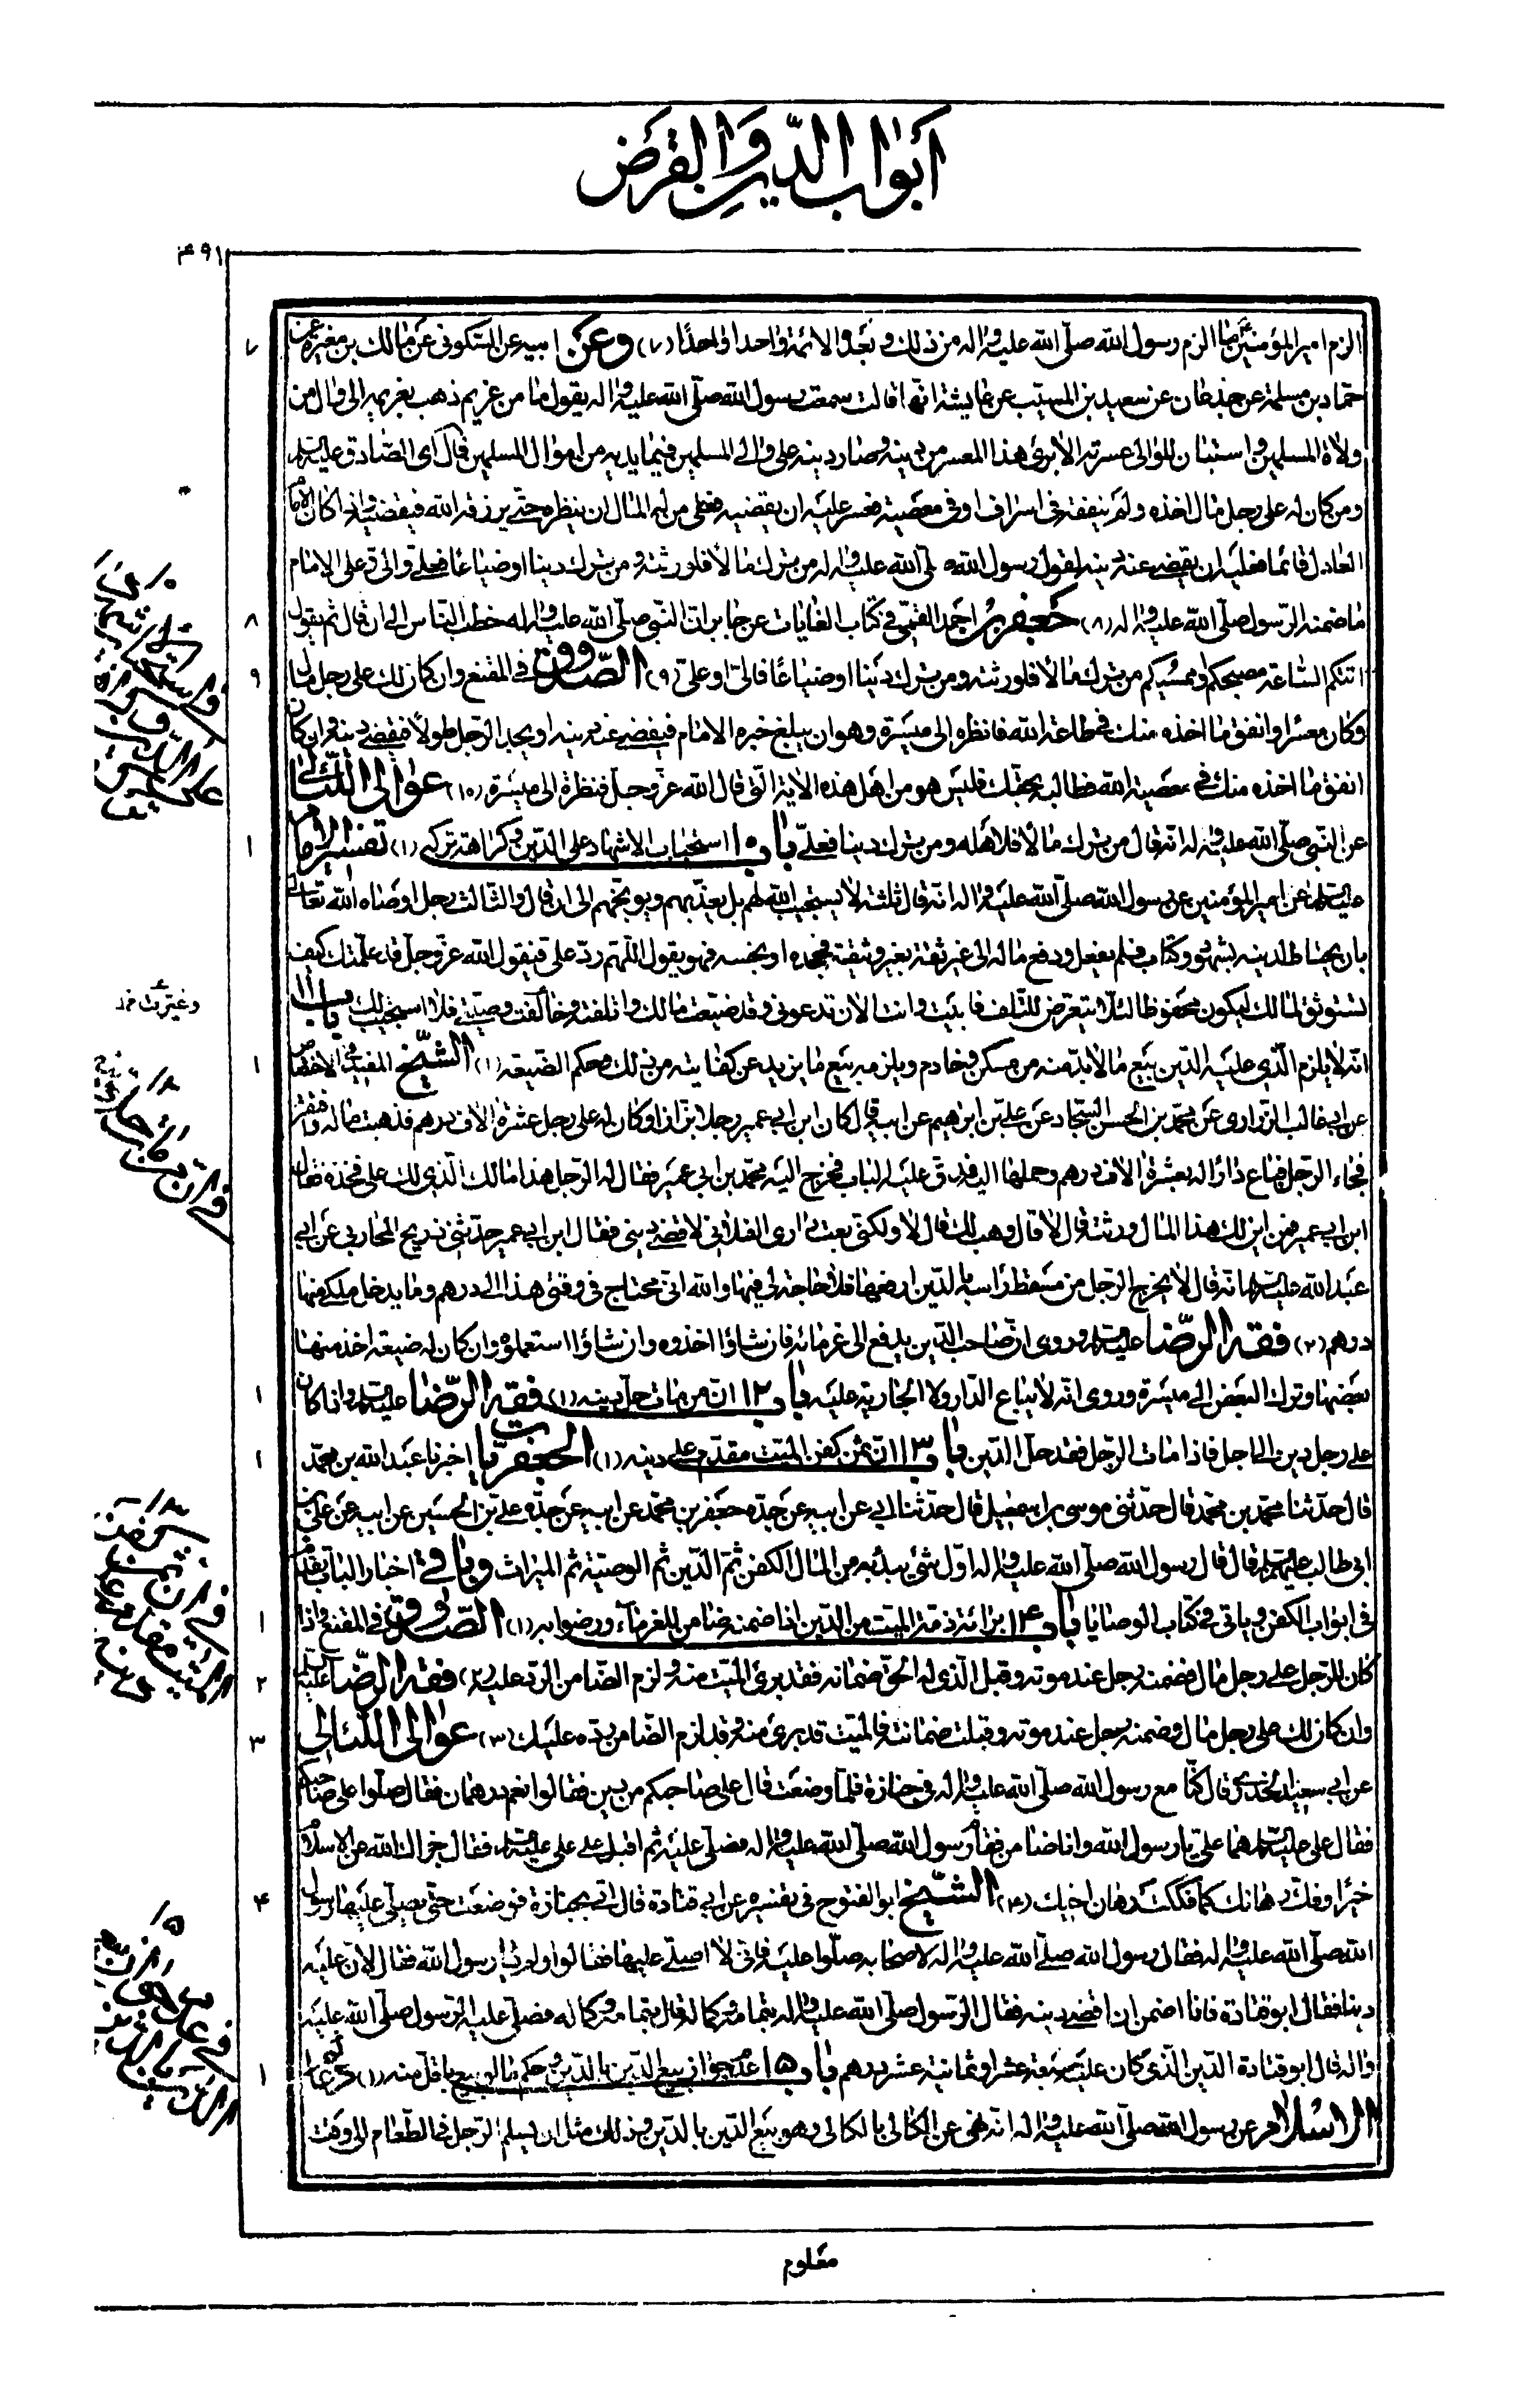 أبواب الدين والقرض
۴۹۱
الزم امير المؤمنين ما الزم رسول الله صلّى الله عليه واله من ذلك وبعده الائمة واحدا واحدا (٧) وعن ابيه عن السكونى عن مالك بن مغيرة عن
حماد بن مسلمة عن جذعان عن سعيد بن المسيّب عن عايشة انها قالت سمعت رسول الله صلّى الله عليه واله يقول ما من غريم ذهب بغريمه الى وال من
ولاة المسلمين واستبان للوالى عسرته الا برئ هذا المعسر من دينه وصار دينه على والى المسلمين فيما يديه من اموال المسلمين قال اى الصّادق عليه السلم
ومن كان له على رجل مال اخذه ولم ينفقه فى اسراف او فى معصية فعسر عليه ان يقضيه فعلى من له المال ان ينظره حتى يرزقه الله فيقضيه واذا كان الامام
العادل قائما فعليه ان يقضى عنه دينه لقول رسول الله صلى الله عليه واله من ترك مالا فلورثته ومن ترك دينا او ضياعا فعلىّ والىّ وعلى الامام
ما ضمنه الرّسول صلّى الله عليه واله (٨) جعفر بن احمد القمّى فى كتاب الغايات عن جابر انّ النّبى صلّى الله عليه واله خطب النّاس الى ان قال ثم يقول
اتتكم السّاعة مصبحكم وممسيكم من ترك مالا فلورثته ومن ترك دينا او ضياعًا فالىّ او علىّ (٩) الصّدوق فى المقنع وان كان لك على رجل مال
وكان معسرا وانفق ما اخذه منك فى طاعة الله فانظره الى ميسرة وهو ان يبلغ خبره الامام فيقضى عنه دينه او يجد الرّجل طولا فيقضى دينه وان كان
انفق ما اخذه منك فى معصية الله فطالبه بحقّك فليس هو من اهل هذه الاية الّتى قال الله عزّ وجلّ فنظرة الى ميسرة (١٠) عوالى اللّئالى
عن النّبى صلّى الله عليه واله انه قال من ترك مالا فلاهله ومن ترك دينا فعلىّ باب ١٠ استحباب الاشهاد على الدّين وكراهة تركه (١) تفسير الامام
عليه السلم عن امير المؤمنين عن رسول الله صلّى الله عليه واله انه قال ثلثة لا يستجيب الله لهم بل يعذّبهم ويوبّخهم الى ان قال والثالث رجل اوصاه الله تعالى
بان يحتاط لدينه بشهود وكتاب فلم يفعل ودفع ماله الى غير ثقة بغير وثيقة فجحده او بخسه فهو يقول اللّهم ردّ علىّ فيقول الله عزّ وجلّ قد علّمتك كيف
تستوثق لمالك ليكون محفوظا لئلا يتعرض للتّلف فابيت وانت الان تدعونى وقد ضيعت مالك واتلفته وخالفت وصيّتى فلا استجيب لك باب ١١
انه لا يلزم الّذى عليه الدّين بيع ما لا بدّ منه من مسكن وخادم ويلزمه بيع ما يزيد عن كفايته من ذلك وحكم الضّيعة (١) الشّيخ المفيد فى الاختصاص
عن ابى غالب الزرارى عن محمّد بن الحسن السجّاد عن علىّ بن ابرهيم عن ابيه قال كان ابن ابى عمير رجلا بزّازا وكان له على رجل عشرة الاف درهم فذهب ماله وافتقر
فجاء الرّجل فباع دارا له بعشرة الاف درهم وحملها اليه فدقّ عليه الباب فخرج اليه محمّد بن ابى عمير فقال له الرّجل هذا مالك الّذى لك علىّ فخذه فقال
ابن ابى عمير فمن اين لك هذا المال ورثته قال لا قال وهب لك قال لا ولكنى بعت دارى الفلانى لاقضى دينى فقال ابن ابى عمير حدّثنى ذريح المحاربى عن ابى
عبد الله عليه السلم انه قال لا يخرج الرّجل من مسقط راسه بالدّين ارفعها فلا حاجة لى فيها والله انى محتاج فى وقتى هذا الى درهم وما يدخل ملكى منها
درهم (٢) فقه الرّضا عليه السلم وروى ان صاحب الدّين يدفع الى غرمائه فان شاؤا اخذوه وان شاؤا استعملوه وان كان له ضيعة اخذ منها
بعضها وترك البعض الى ميسرة وروى انه لا يباع الدّار ولا الجارية عليه باب ١٢ انّ من مات حلّ دينه (١) فقه الرّضا عليه السلم واذا كان
على رجل دين الى اجل فاذا مات الرّجل فقد حلّ الدّين باب ١٣ انّ ثمن كفن الميّت مقدّم على دينه (١) الجعفريّات اخبرنا عبد الله بن محمّد
قال حدّثنا محمّد بن محمّد قال حدّثنى موسى بن اسمعيل قال حدّثنا ابى عن ابيه عن جدّه جعفر بن محمّد عن ابيه عن جدّه علىّ بن الحسين عن ابيه عن على بن
ابى طالب عليهم السلم قال قال رسول الله صلّى الله عليه واله اوّل شئ يبدء به من المال الكفن ثمّ الدّين ثمّ الوصيّة ثم الميراث وياتى اخبار الباب تقدم
فى ابواب الكفن وياتى فى كتاب الوصايا باب ١٤ برائة ذمّة الميّت من الدّين اذا ضمنه ضامن للغرماء ورضوا به (١) الصّدوق فى المقنع واذا
كان للرّجل على رجل مال فضمنه رجل عند موته وقبل الّذى له الحقّ ضمانه فقد برئ الميّت منه ولزم الضّامن الرّد عليه (٢) فقه الرّضا عليه السلم
وان كان لك على رجل مال وضمنه رجل عند موته وقبلت ضمانته فالميّت قد برئ منه وقد لزم الضّامن ردّه عليك (٣) عوالى اللّئالى
عن ابى سعيد الخدرى قال كنّا مع رسول الله صلّى الله عليه واله فى جنازة فلمّا وضعت قال على صاحبكم من دين فقالوا نعم درهمان فقال صلّوا على صاحبكم
فقال على عليه السلم هما علىّ يا رسول الله وانا ضامن فقام رسول الله صلّى الله عليه واله فصلّى عليه ثم اقبل على على عليه السلم فقال جزاك الله عن الاسلام
خيرا وفكّ رهانك كما فككت رهان اخيك (۴) الشّيخ ابو الفتوح فى تفسيره عن ابى قتادة قال اتى بجنازة فوضعت حتى يصلى عليها رسول
الله صلّى الله عليه واله فقال رسول الله صلّى الله عليه واله لاصحابه صلّوا عليه فانى لا اصلّى عليها فقالوا ولم يا رسول الله فقال لانّ عليه
دينا فقال ابو قتادة فانا اضمن ان اقضى دينه فقال الرّسول صلّى الله عليه واله بتمامه وكماله قال بتمامه وكماله فصلّى عليه الرّسول صلّى الله عليه
واله قال ابو قتادة الدّين الّذى كان عليه سبعة عشر او ثمانية عشر درهم باب ١٥ عدم جواز بيع الدّين بالدّين وحكم ما لو بيع باقلّ منه (١) دعائم
الاسلام عن رسول الله صلّى الله عليه واله انه نهى عن الكالى بالكالى وهو بيع الدّين بالدّين وذلك مثل ان يسلم الرّجل فى الطّعام الى وقت
معلوم